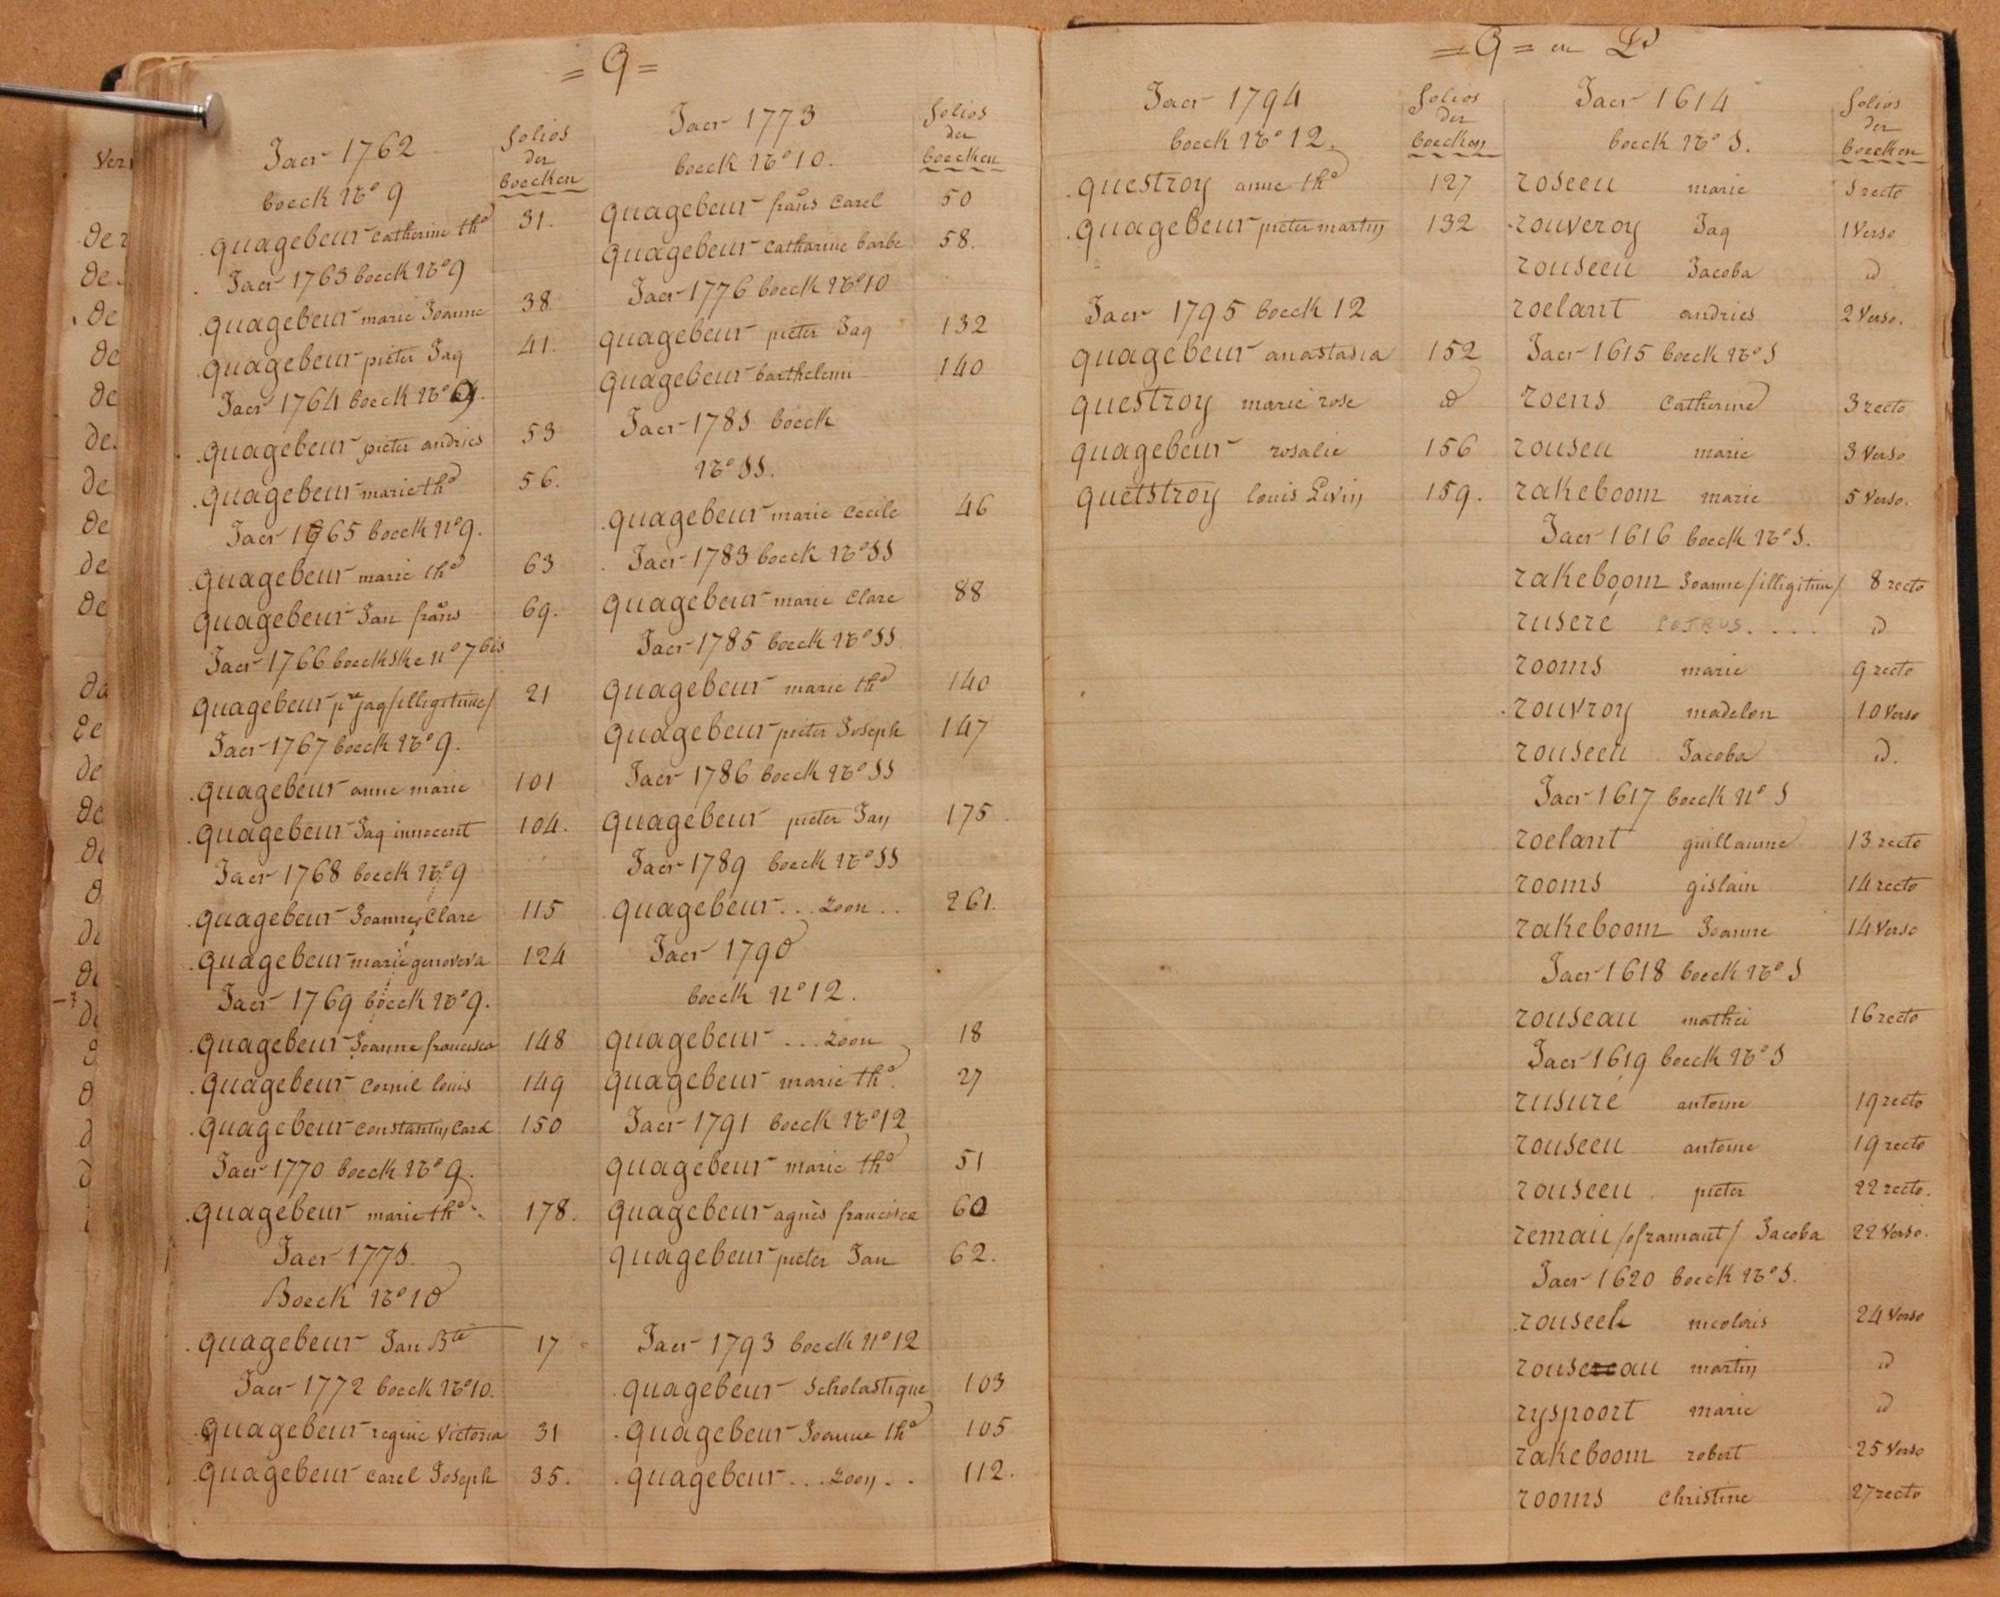 = Q =
Jaer 1762
folios
der
boecken
boeck No 9
quagebeur catherine tha 31.
Jaer 1763 boeck No 9
quagebeur marie Joanne 38
quagebeur pieter Jaq 41.
Jaer 1764 boeck No 9.
quagebeur pieter andries 53
quagebeur marie tha 56.
Jaer 1765 boeck no 9.
quagebeur marie tha 63
quagebeur Jan frans 69.
Jaer 1766 boeckske no 7 bis
quagebeur pre jaq /illigitime/ 21
Jaer 1767 boeck No 9.
quagebeur anne marie 101
quagebeur Jaq innocent 104.
Jaer 1768 boeck No 9
quagebeur Joanne Clare 115
quagebeur marie genoveva 124
Jaer 1769 boeck No 9.
quagebeur Joanne francisca 148
quagebeur cornil louis 149
quagebeur constantin Carel 150
Jaer 1770 boeck No 9.
quagebeur marie tha 178.
Jaer 1771.
Boeck No 10
quagebeur Jan Bte 17
Jaer 1772 boeck No 10.
quagebeur regine Victoria 31
quagebeur carel Joseph 35.
Jaer 1773
folios
der
boecken
boeck No 10.
quagebeur frans Carel 50
quagebeur catharine barbe 58.
Jaer 1776 boeck No 10
quagebeur pieter Jaq 132
quagebeur barthelemi 140
Jaer 1781 boeck
No 11.
quagebeur marie Cecile 46
Jaer 1783 boeck No 11
quagebeur marie Clare 88
Jaer 1785 boeck No 11.
quagebeur marie tha 140
quagebeur pieter Joseph 147
Jaer 1786 boeck No 11
quagebeur pieter Jan 175
Jaer 1789 boeck No 11
quagebeur ... zoon .. 261.
Jaer 1790
boeck no 12.
quagebeur ... zoon 18
quagebeur marie tha. 27
Jaer 1791 boeck No 12
quagebeur marie tha 51
quagebeur agnès francisca 60
quagebeur pieter Jan 62.
Jaer 1793 boeck no 12
quagebeur Scholastique 103
quagebeur Joanne tha 105
quagebeur ... zoon .. 112.
= Q = en R
Jaer 1794
folios
der
boecken
boeck No 12.
questroy anne tha 127
quagebeur pieter martin 132
Jaer 1795 boeck 12
quagebeur anastasia 152
questroy marie rose id
quagebeur rosalie 156
quetstroy louis Livin 159.
Jaer 1614
folios
der
boecken
boeck No 1.
roseeu marie 1 recto
rouveroy Jaq 1 Verso
rouseeu Jacoba id
roelant andries 2 Verso.
Jaer 1615 boeck No 1
roens Catherine 3 recto
rouseu marie 3 Verso
rakeboom marie 5 Verso.
Jaer 1616 boeck No 1.
rakeboom Joanne /illigitim/ 8 recto
ruseré PETRUS.... id
rooms marie 9 recto
rouvroy madelen 10 Verso
rouseeu Jacoba id.
Jaer 1617 boeck no 1
roelant guillaume 13 recto
rooms gislain 14 recto
rakeboom Joanne 14 Verso
Jaer 1618 boeck No 1
rouseau mathei 16 recto
Jaer 1619 boeck No 1
rusuré antoine 19 recto
rouseeu antoine 19 recto
rouseeu pieter 22 recto.
remau /oframaut/ Jacoba 22 Verso.
Jaer 1620 boeck No 1.
rouseel nicolais 24 Verso
rouseau martin id
ryspoort marie id
rakeboom robert 25 Verso
rooms Christine 27 recto